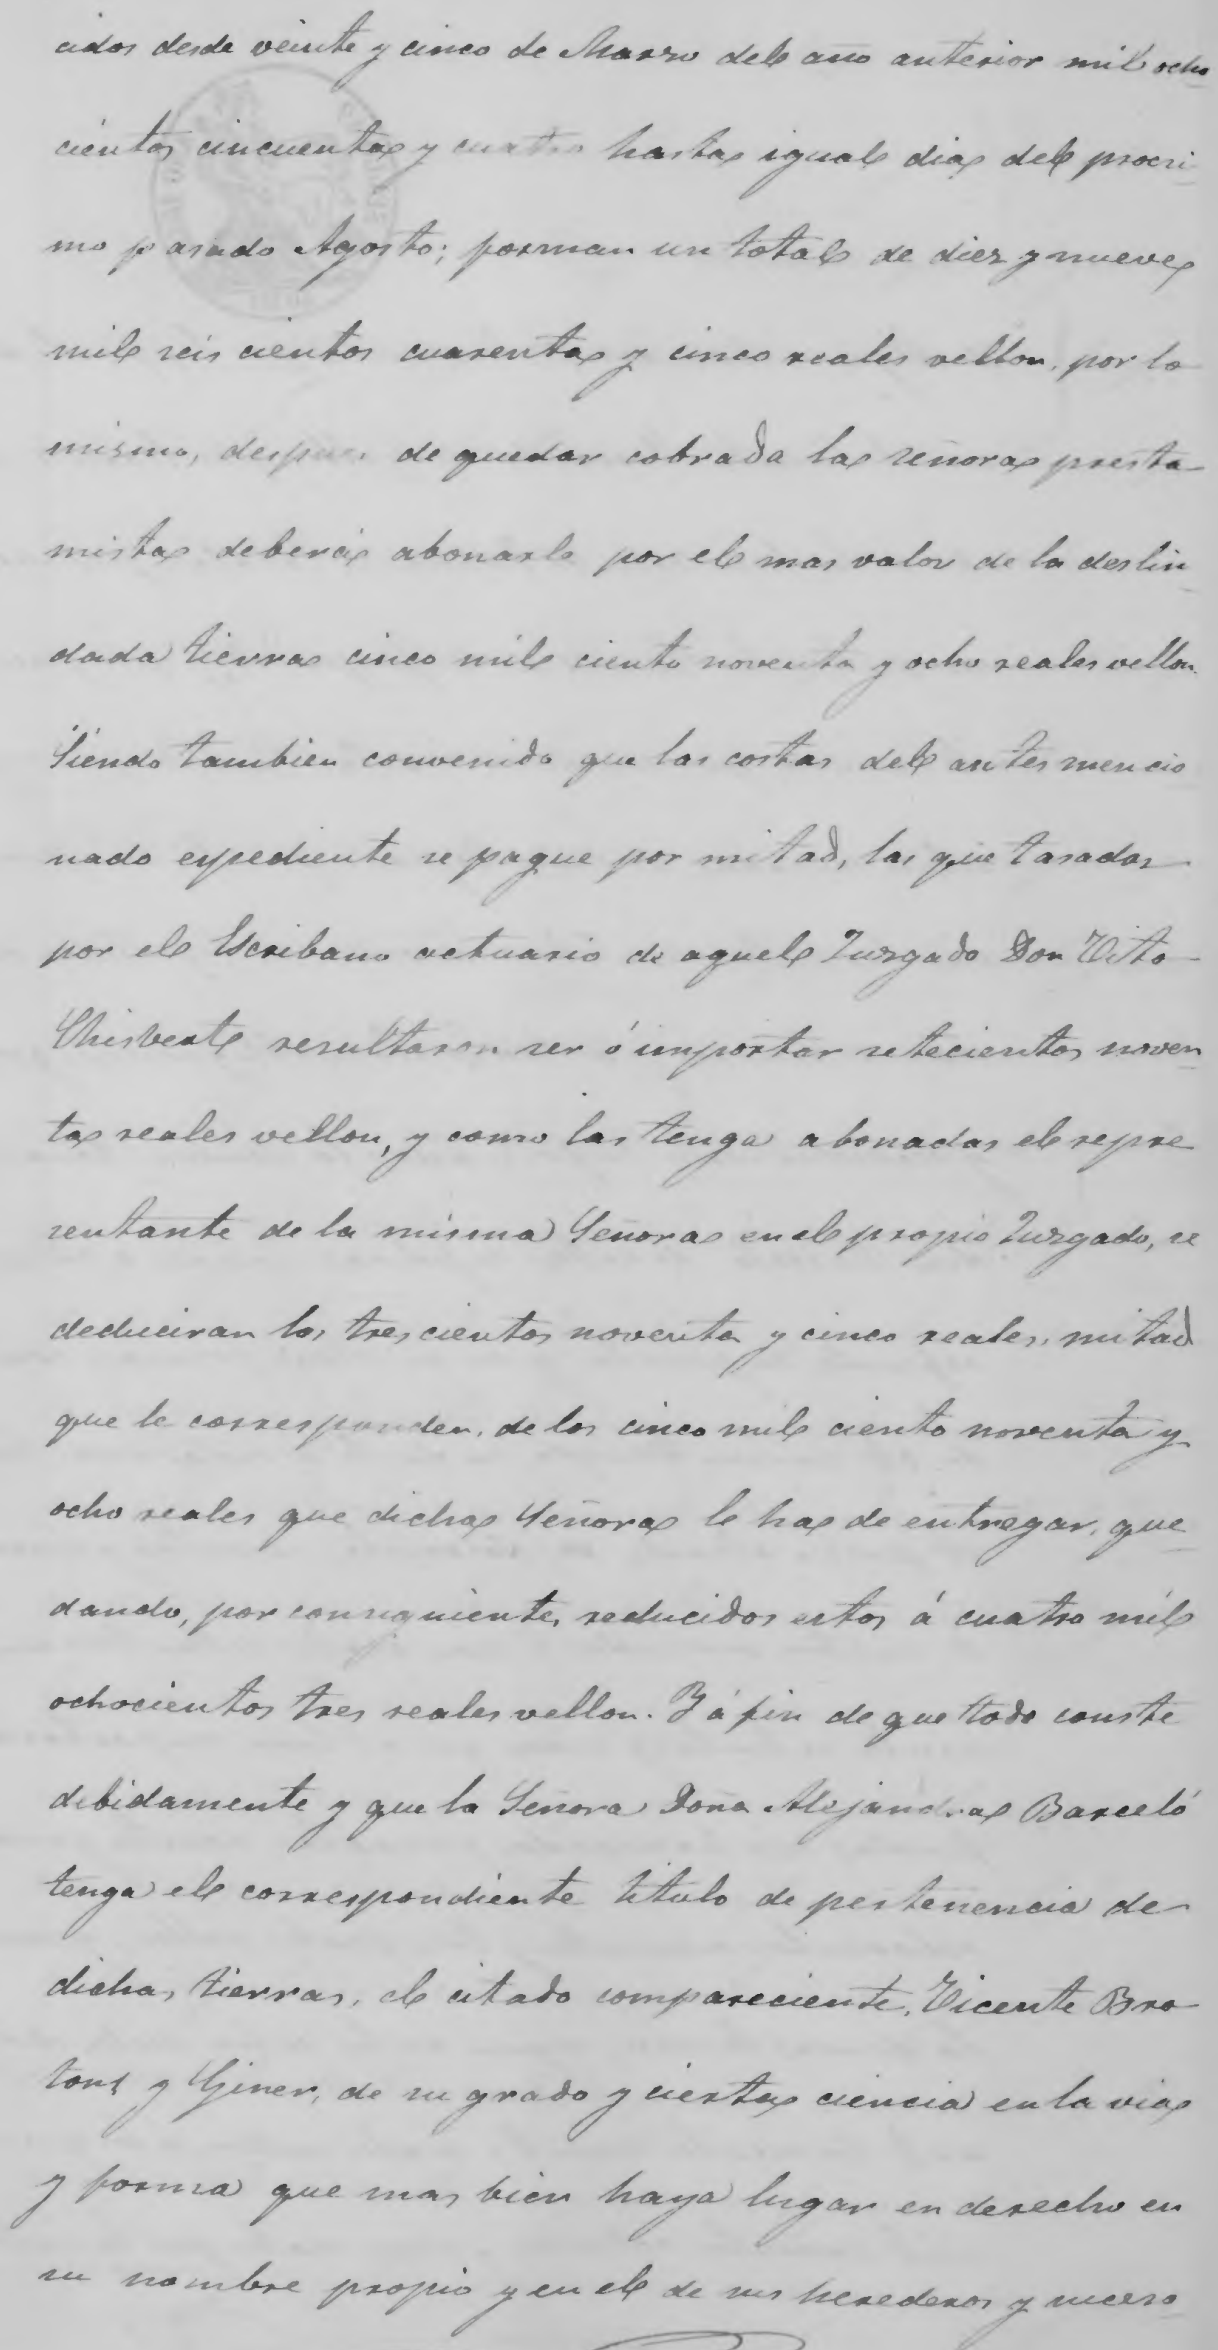 cidos desde veinte y cinco de Marzo del año anterior mil ocho
cientos cincuenta y cuatro hasta igual dia del procsi
mo pasado Agosto; forman un total de diez y nueve
mil seis cientos cuarenta y cinco reales vellon, por lo
mismo, despues de quedar cobrada la señora presta
mista deberá abonarle por el mas valor de la deslin
dada tierra cinco mil ciento noventa y ocho reales vellon.
Siendo tambien convenido que las costas del antes mencio
nado espediente se pague por mitad, las que tasadas
por el Escribano actuario de aquel Juzgado Don Vito
Chisbert resultaron ser ó importar setecientos noven
ta reales vellon, y como las tenga abonadas el repre
sentante de la misma Señora en el propio Juzgado, se
deduciran los trescientos noventa y cinco reales, mitad
que le corresponden, de los cinco mil ciento noventa y
ocho reales que dicha Señora le ha de entregar, que
dando, por consiguiente, reducidos estos á cuatro mil
ochocientos tres reales vellon. Y á fin de que todo conste
debidamente y que la Señora Doña Alejandra Barceló
tenga el correspondiente titulo de pertenencia de
dichas tierras, el citado compareciente, Vicente Bro
tons y Giner, de su grado y cierta ciencia en la via
y forma que mas bien haya lugar en derecho en
su nombre propio y en el de sus herederos y suceso